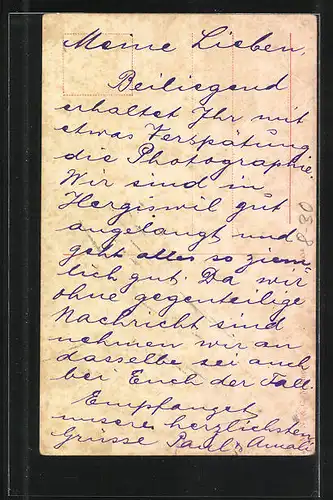 Meine Lieben.
Beiliegend
erhaltet Ihr mit
etwas Verspätung
die Photographie.
Wir sind in
Hergiswil gut
angelangt und
geht alles so ziem-
lich gut. Da wir
ohne gegenteilige
Nachricht sind
nehmen wir an
dasselbe sei auch
bei Euch der Fall.
Empfanget
unsere herzlichsten
Grüsse Paul & Amali
8-30